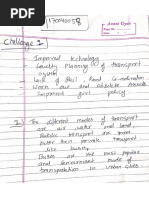 170040058
Amani Gyan
Page No.
Date
Challenge 1
Improved technology
Faulty Planning of transport
system
Lack of Rail Road Co-ordination
Worn out and Obsolete Assets
Improved govt policy
1) The different modes of transport
are air water and land
Public transport are more
better than private transport
like
Public are the most popular
and convenient mode of
transportation in urban cities